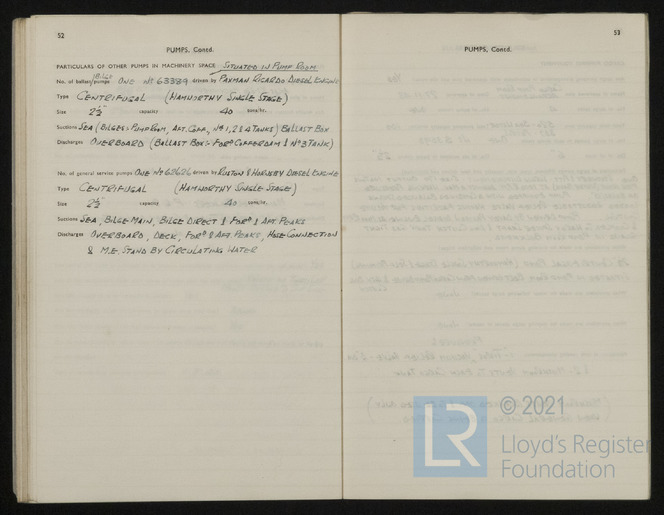 52
PUMPS, Contd.
PARTICULARS OF OTHER PUMPS IN MACHINERY SPACE SITUATED IN PUMP ROOM.
No. of ballast/BILGE pumps ONE Nº 63389 driven by PAXMAN RICARDO DIESEL ENGINE
Type CENTRIFUGAL (HAMWORTHY SINGLE STAGE)
Size 2½" capacity 40 tons/hr.
Suctions SEA (BILGES: PUMP ROOM, AFT. COFF., Nº 1, 2 & 4 TANKS) BALLAST BOX
Discharges OVERBOARD (BALLAST BOX :- FORᴰ COFFERDAM & Nº 3 TANK)
No. of general service pumps ONE Nº 63626 driven by RUSTON & HORNSBY DIESEL ENGINE
Type CENTRIFUGAL (HAMWORTHY SINGLE STAGE)
Size 2½" capacity 40 tons/hr.
Suctions SEA, BILGE MAIN, BILGE DIRECT & FORᴰ & AFT. PEAKS
Discharges OVERBOARD, DECK, FORᴰ & AFT. PEAKS, HOSE CONNECTION
& M.E. STAND BY CIRCULATING WATER
53
PUMPS, Contd.
LR
© 2021
Lloyd's Register
Foundation